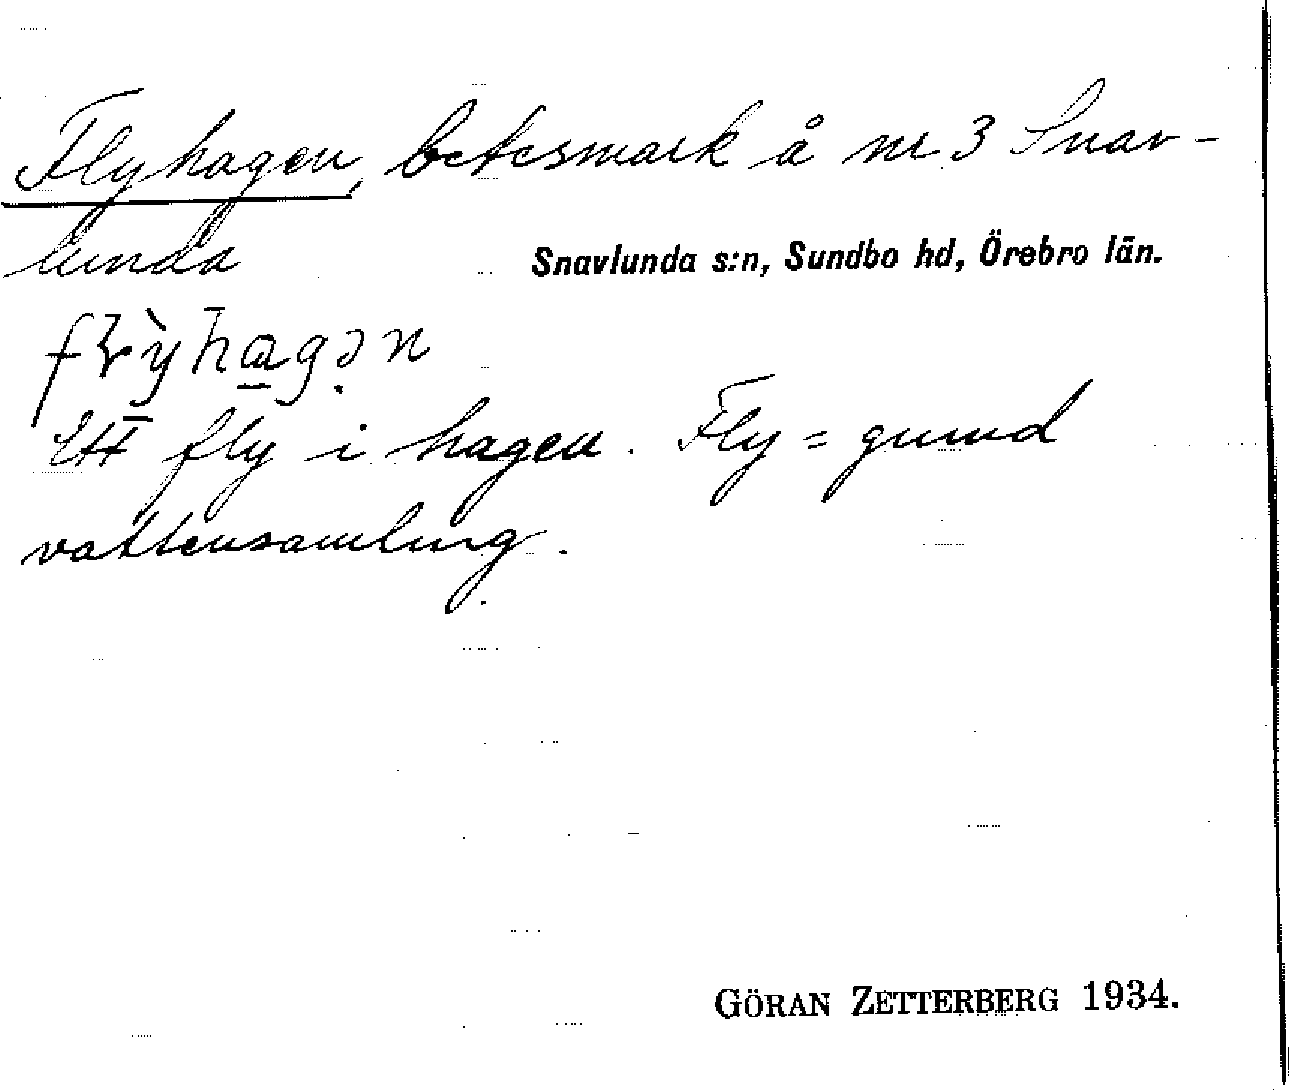 Flyhagen, betesmark å nr 3 Snav-
lunda
Snavlunda s:n, Sundbo hd, Örebro län.
flỳhagən
Ett fly i hagen. Fly = grund
vattensamling.
GÖRAN ZETTERBERG 1934.